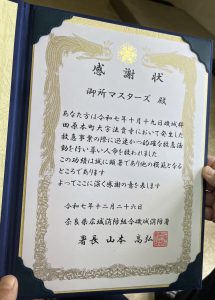 感謝状
御所マスターズ 殿
あなた方は令和七年十月十九日磯城郡
田原本町大字法貴寺において発生した
救急事案の際に迅速かつ的確な救急活
動を行い尊い人命を救われました
この功績は誠に顕著であり他の模範となる
ところであります
よってここに深く感謝の意を表します
令和七年十二月二十六日
奈良県広域消防組合磯城消防署
署長 山本 高弘